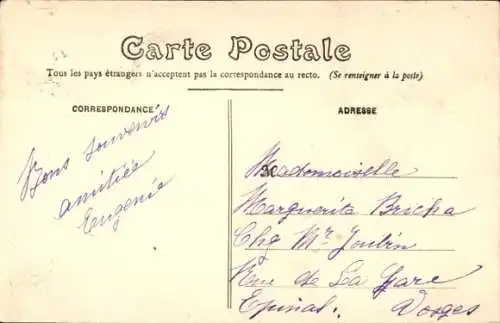 Carte Postale
Tous les pays étrangers n'acceptent pas la correspondance au recto. (Se renseigner à la poste)
CORRESPONDANCE
ADRESSE
Bons souvenirs
amitiés
Eugenie
Mademoiselle
Marguerita Bricka
Chg Mr Joubin
Rue de La Gare
Epinal. Vosges